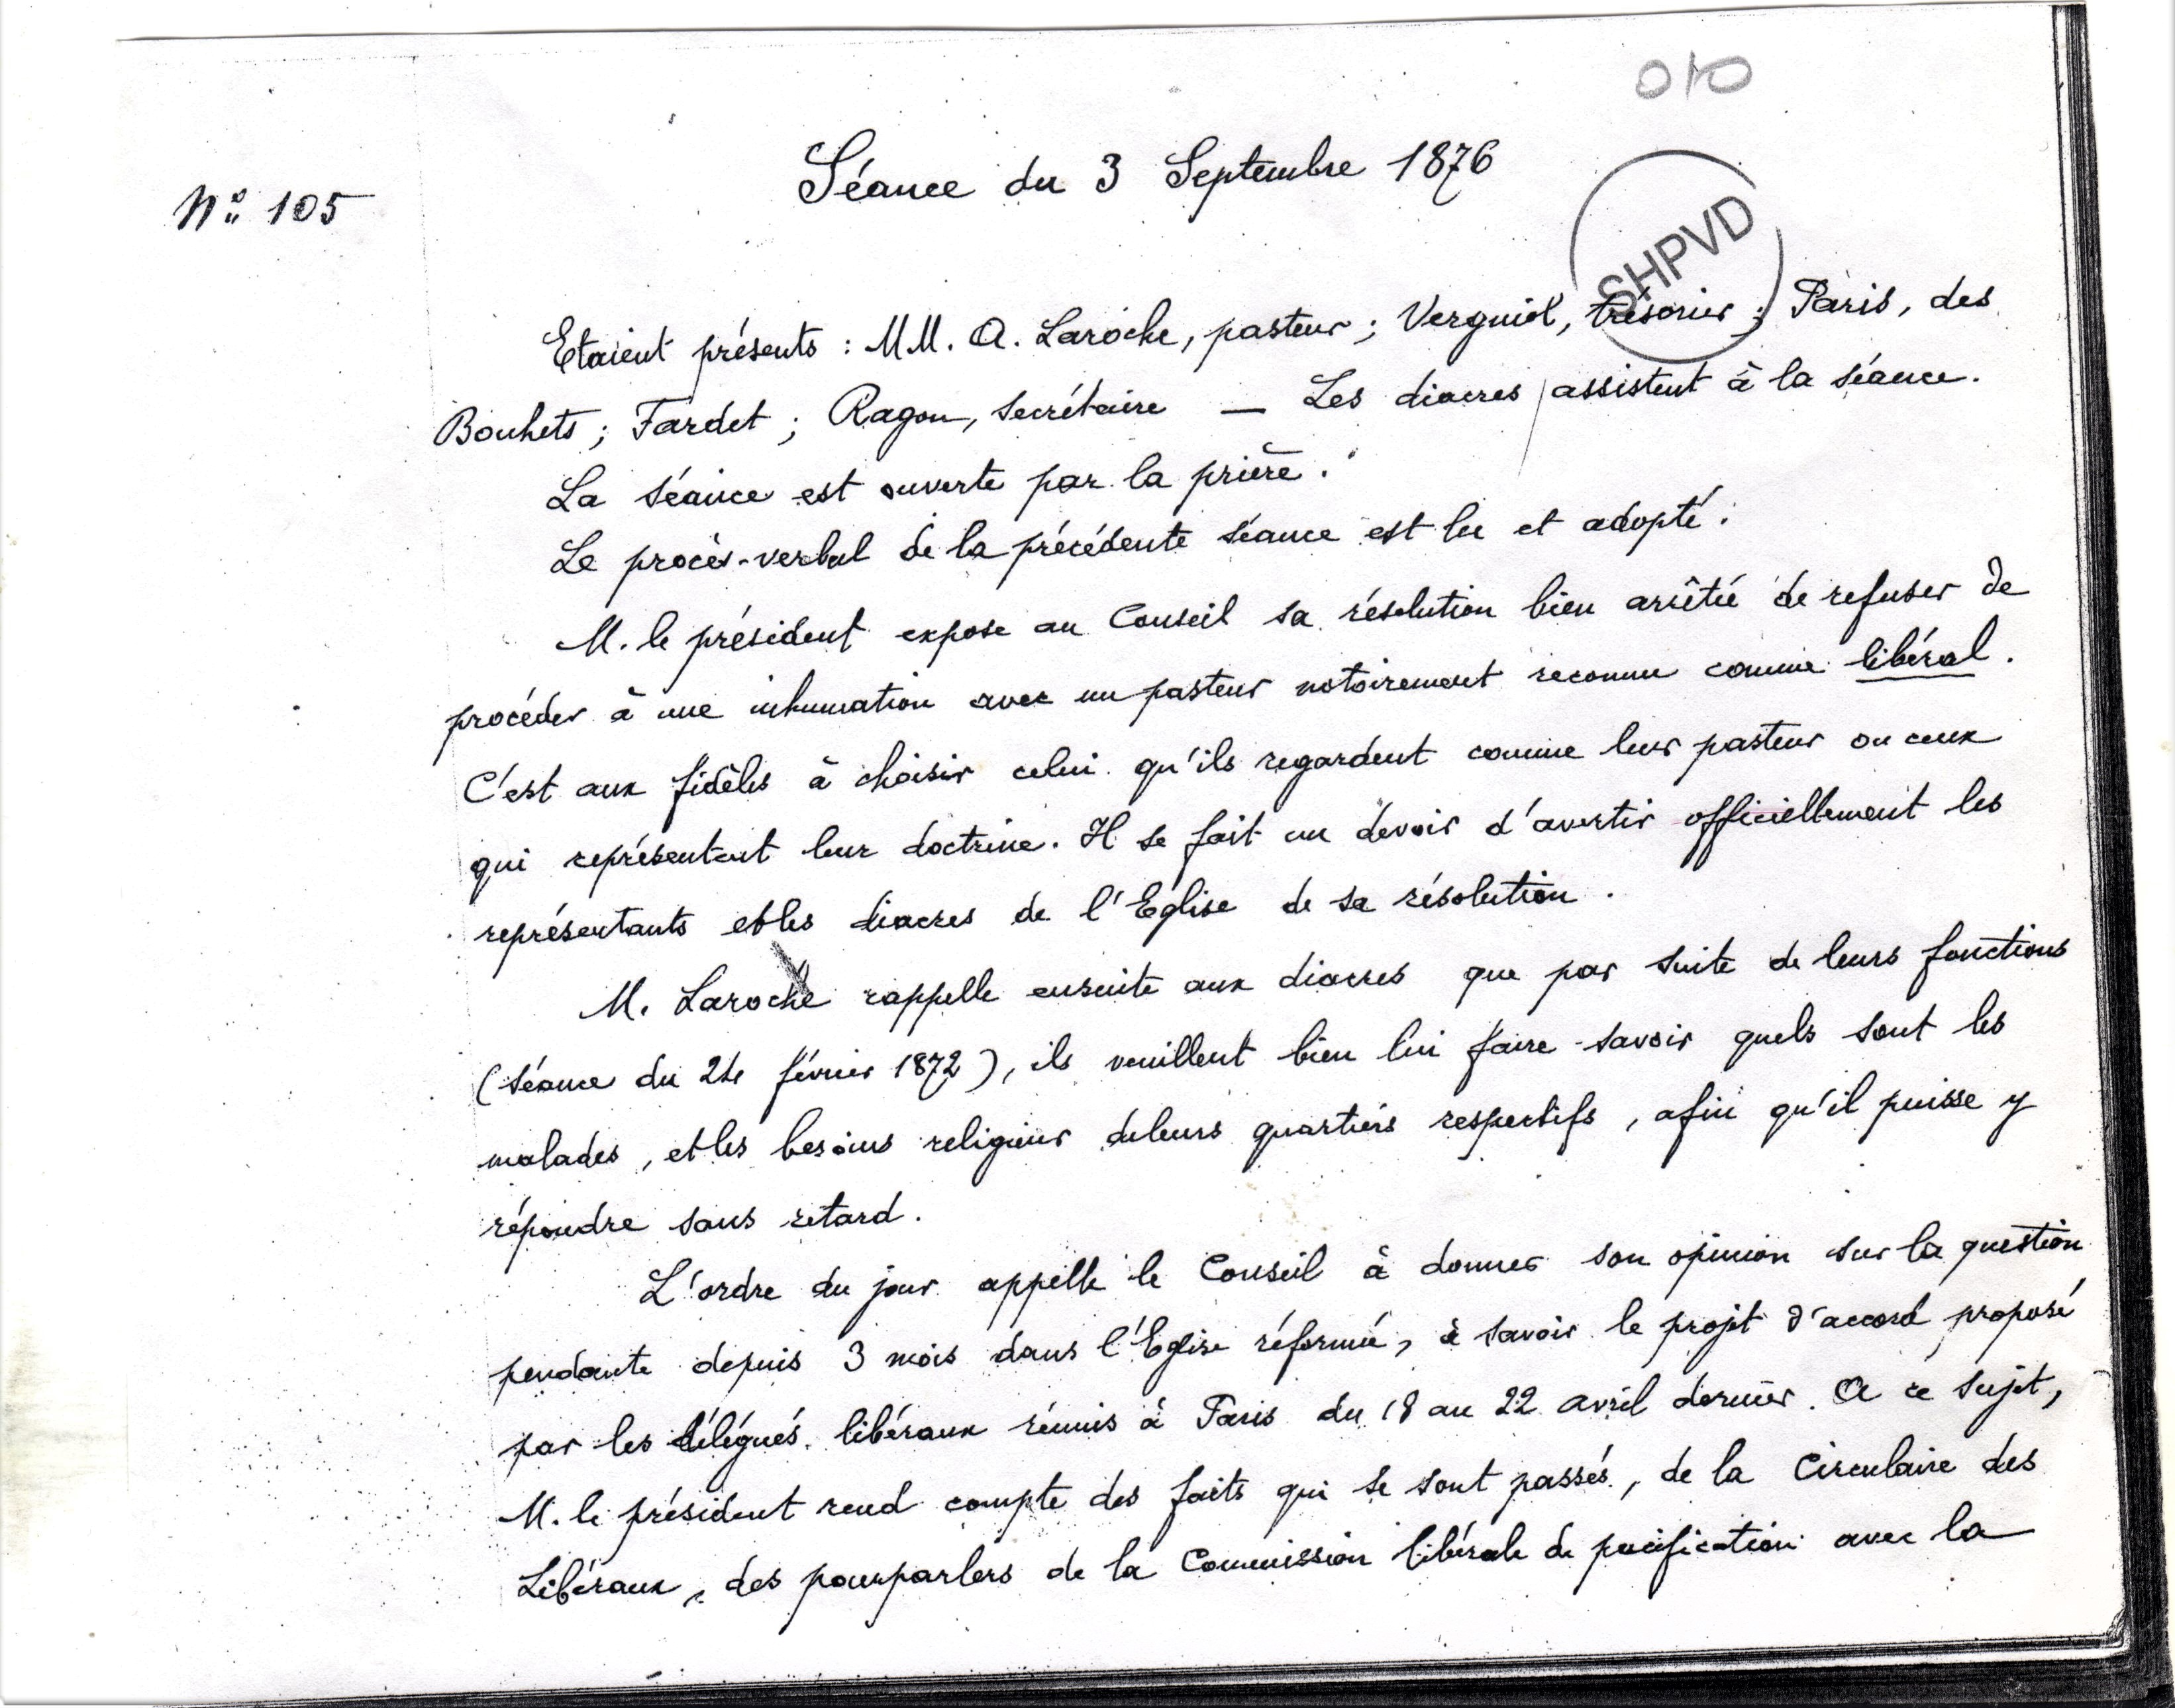 010
Séance du 3 Septembre 1876
N° 105
SHPVD
Etaient présents : MM. A. Laroche, pasteur ; Vergniol, trésorier ; Paris, des
Bouhets ; Fardet ; Ragon, secrétaire — Les diacres assistent à la séance.
La séance est ouverte par la prière.
Le procès-verbal de la précédente séance est lu et adopté.
M. le président expose au Conseil sa résolution bien arrêtée de refuser de
procéder à une inhumation avec un pasteur notoirement reconnu comme libéral.
C'est aux fidèles à choisir celui qu'ils regardent comme leur pasteur ou ceux
qui représentent leur doctrine. Il se fait un devoir d'avertir officiellement les
représentants et les diacres de l'Eglise de sa résolution.
M. Laroche rappelle ensuite aux diacres que par suite de leurs fonctions
(séance du 24 février 1872), ils veuillent bien lui faire savoir quels sont les
malades, et les besoins religieux de leurs quartiers respectifs, afin qu'il puisse y
répondre sans retard.
L'ordre du jour appelle le Conseil à donner son opinion sur la question
pendante depuis 3 mois dans l'Eglise réformée, à savoir le projet d'accord proposé
par les délégués libéraux réunis à Paris du 18 au 22 avril dernier. A ce sujet,
M. le président rend compte des faits qui se sont passés, de la Circulaire des
Libéraux, des pourparlers de la Commission libérale de pacification avec la